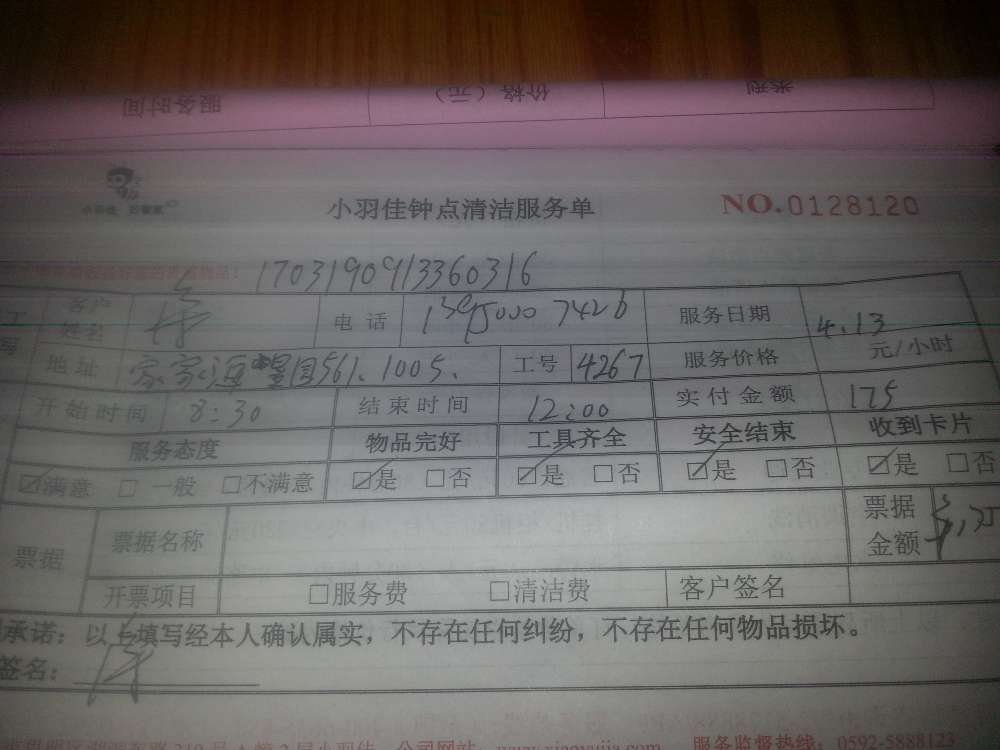 服务时间 价格（元） 类别
小羽佳钟点清洁服务单 NO.0128120
1703190913360316
客户姓名 电话 13950007426 服务日期 4.13
地址 家家海景园561.1005. 工号 4267 服务价格 元/小时
开始时间 8:30 结束时间 12:00 实付金额 175
服务态度 物品完好 工具齐全 安全结束 收到卡片
☑满意 □一般 □不满意 ☑是 □否 ☑是 □否 ☑是 □否 ☑是 □否
票据 票据名称 票据金额
开票项目 □服务费 □清洁费 客户签名
承诺：以上填写经本人确认属实，不存在任何纠纷，不存在任何物品损坏。
签名：
公司网站 www.xiaoyujia.com 服务监督热线：0592-5888123